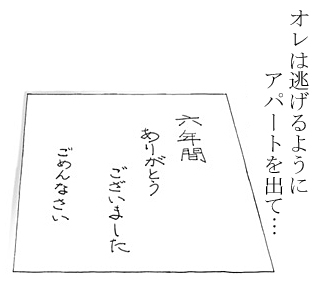 オレは逃げるように
アパートを出て…
六年間
ありがとう
ございました
ごめんなさい